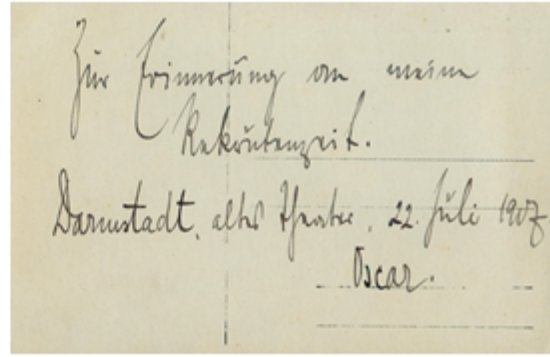 Zur Erinnerung an meine
Rekrutenzeit.
Darmstadt, altes Theater, 22. Juli 1907
Oscar.